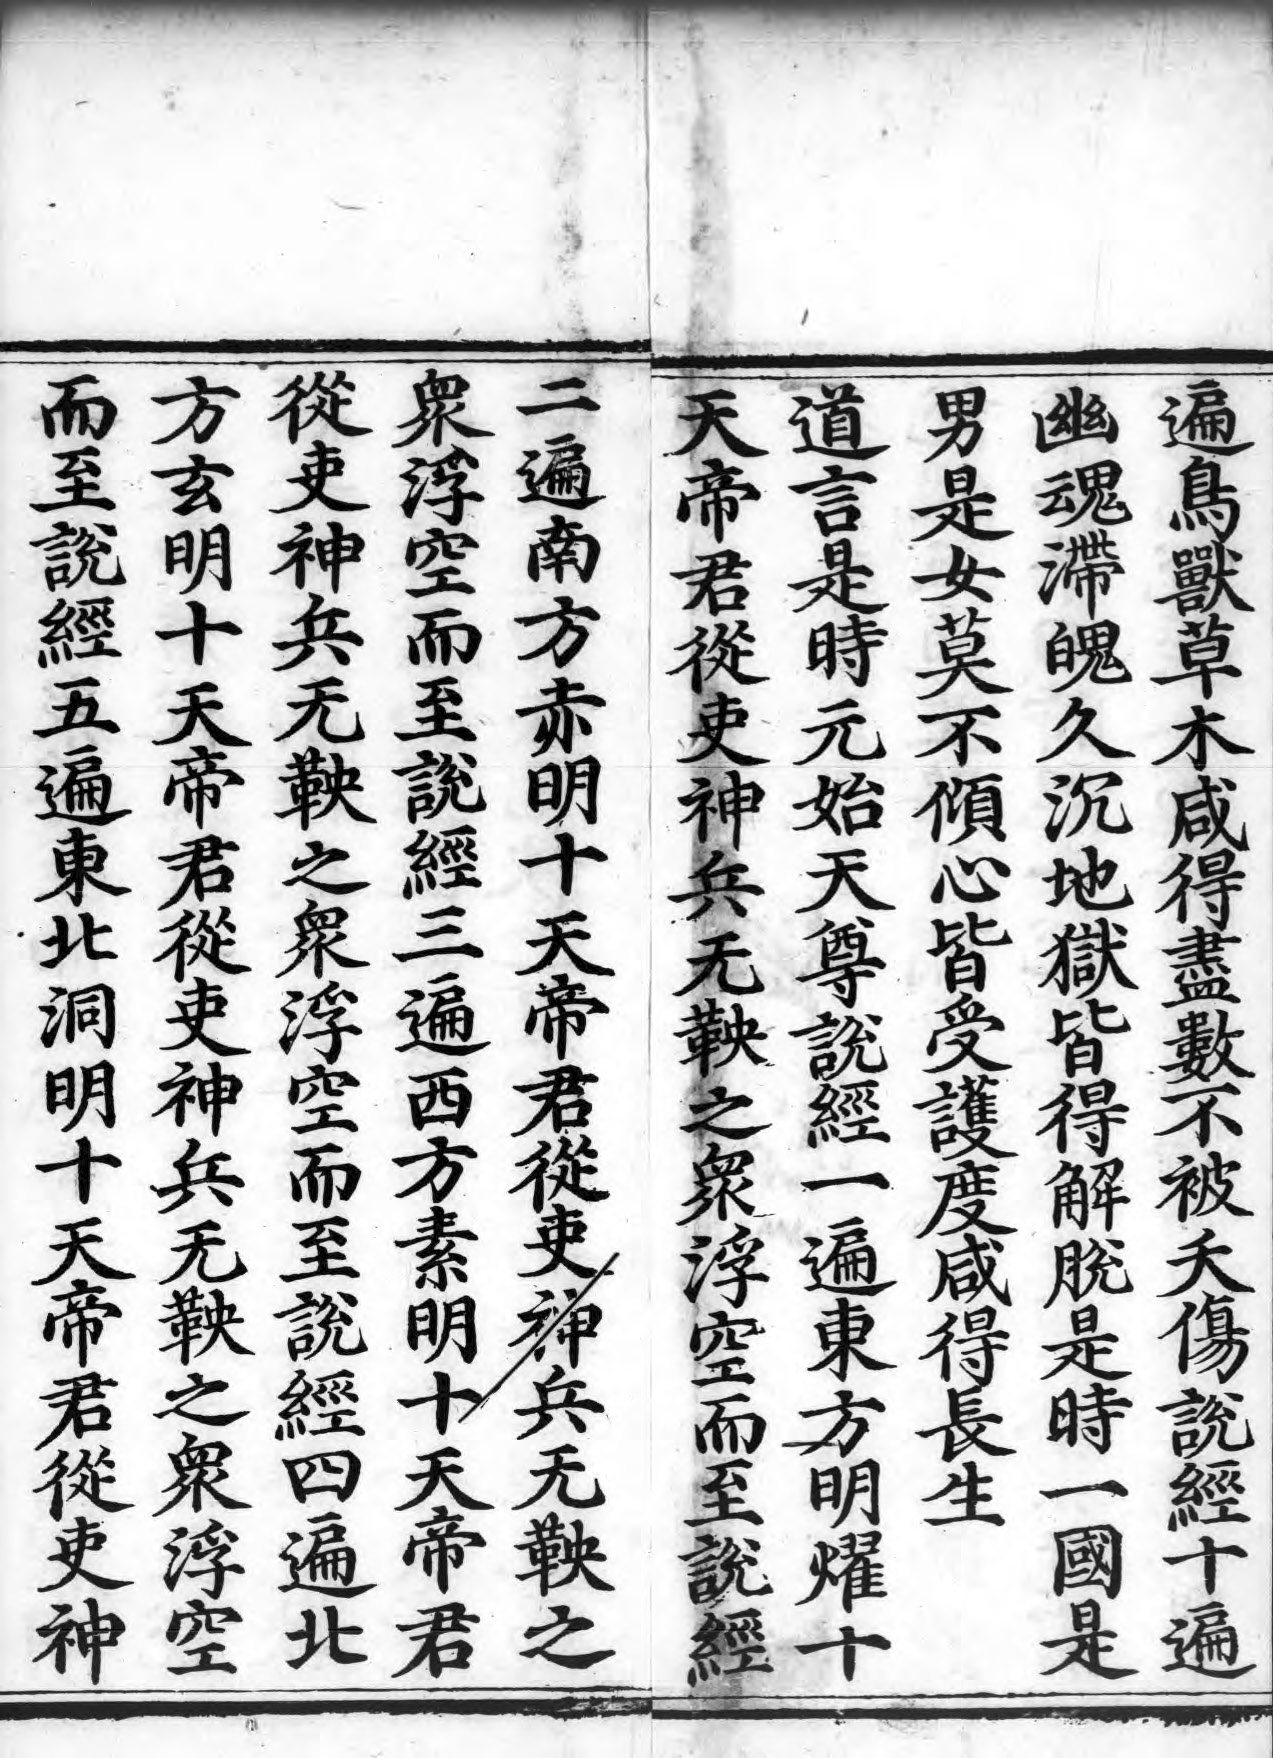 遍鳥獸草木咸得盡數不被夭傷說經十遍
幽魂滯魄久沉地獄皆得解脫是時一國是
男是女莫不傾心皆受護度咸得長生
道言是時元始天尊說經一遍東方明燿十
天帝君從吏神兵无鞅之衆浮空而至說經
二遍南方赤明十天帝君從吏神兵无鞅之
衆浮空而至說經三遍西方素明十天帝君
從吏神兵无鞅之衆浮空而至說經四遍北
方玄明十天帝君從吏神兵无鞅之衆浮空
而至說經五遍東北洞明十天帝君從吏神